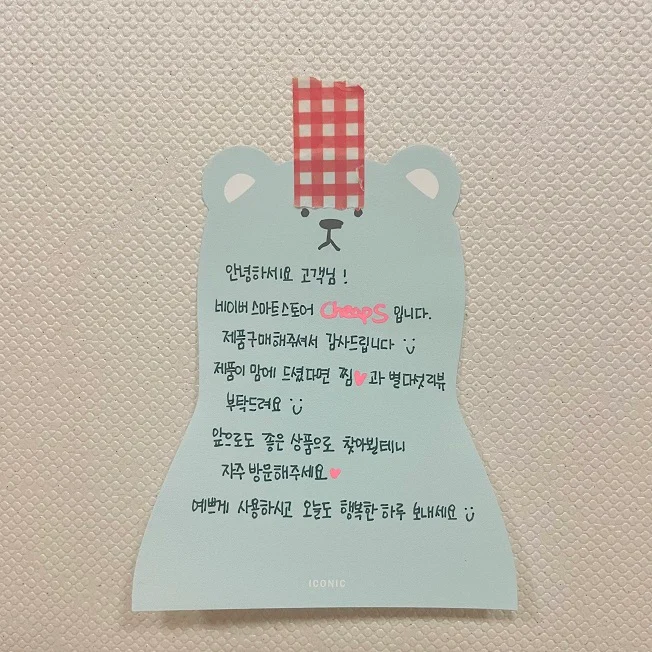 안녕하세요 고객님!
네이버 스마트스토어 Cheaps 입니다.
제품구매해주셔서 감사드립니다
제품이 맘에 드셨다면 찜♥과 별다섯리뷰
부탁드려요
앞으로도 좋은 상품으로 찾아뵐테니
자주 방문해주세요♥
예쁘게 사용하시고 오늘도 행복한 하루 보내세요
ICONIC